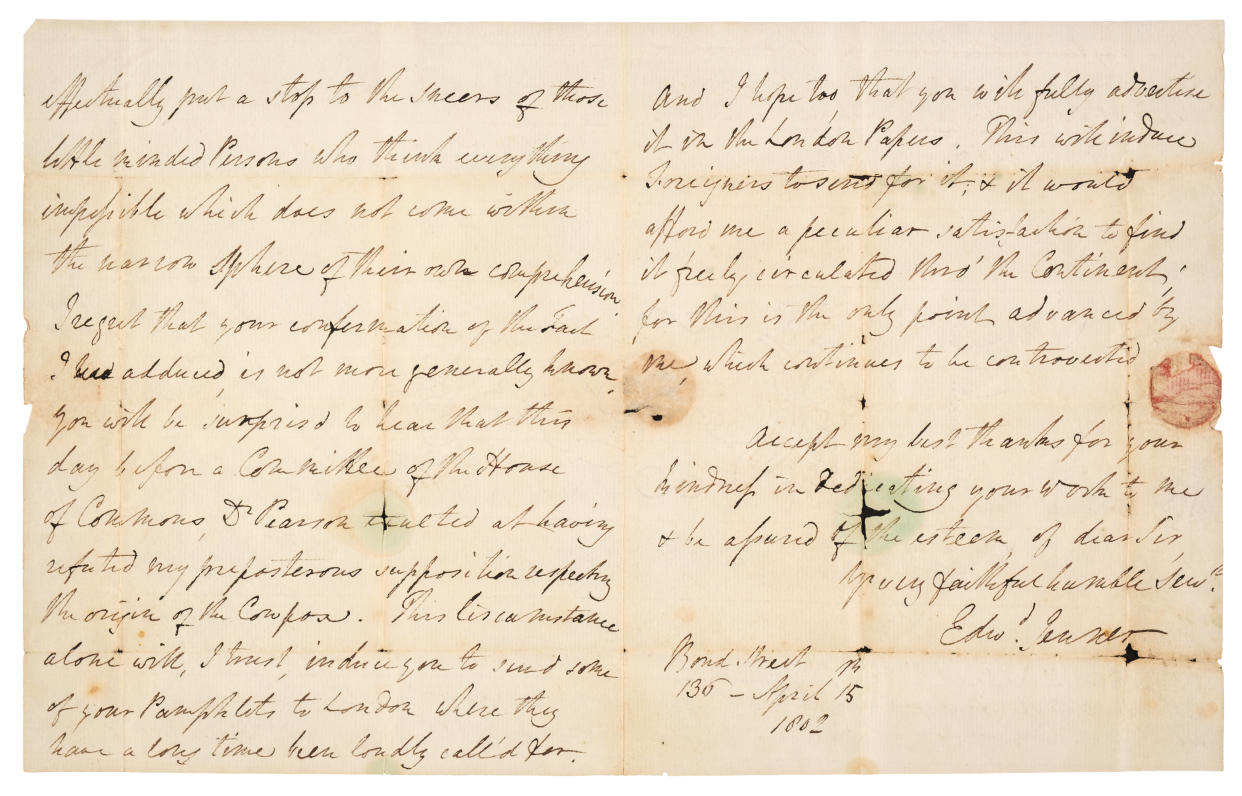 effectually put a stop to the sneers of those
little minded Persons who think everything
impossible which does not come within
the narrow sphere of their own comprehension
I regret that your confirmation of the Fact
I had adduced, is not more generally known,
you will be surpris'd to hear that this
day before a Committee of the House
of Commons, Dr Pearson exulted at having
refuted my preposterous supposition respecting
the origin of the Cowpox. This Circumstance
alone will, I trust, induce you to send some
of your Pamphlets to London where they
have a long time been loudly call'd for.
And I hope too that you will fully advertise
it in the London Papers. This will induce
Foreigners to send for it, & it would
afford me a peculiar satisfaction to find
it freely circulated thro' the Continent;
for this is the only point advanced by
me, which continues to be controverted
Accept my best thanks for your
kindness in Dedicating your work to me
& be assured of the esteem, of dear Sir,
Yr very faithful humble Servt.
Edwd. Jenner
Bond Street
136 – April 15th
1802